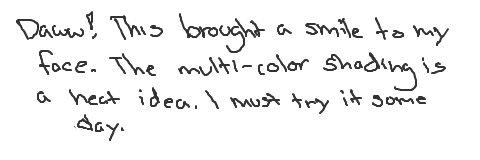 Daww! This brought a smile to my
face. The multi-color shading is
a neat idea. I must try it some
day.